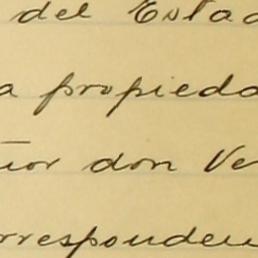 del Estad
a propieda
ñor don Ve
rresponden